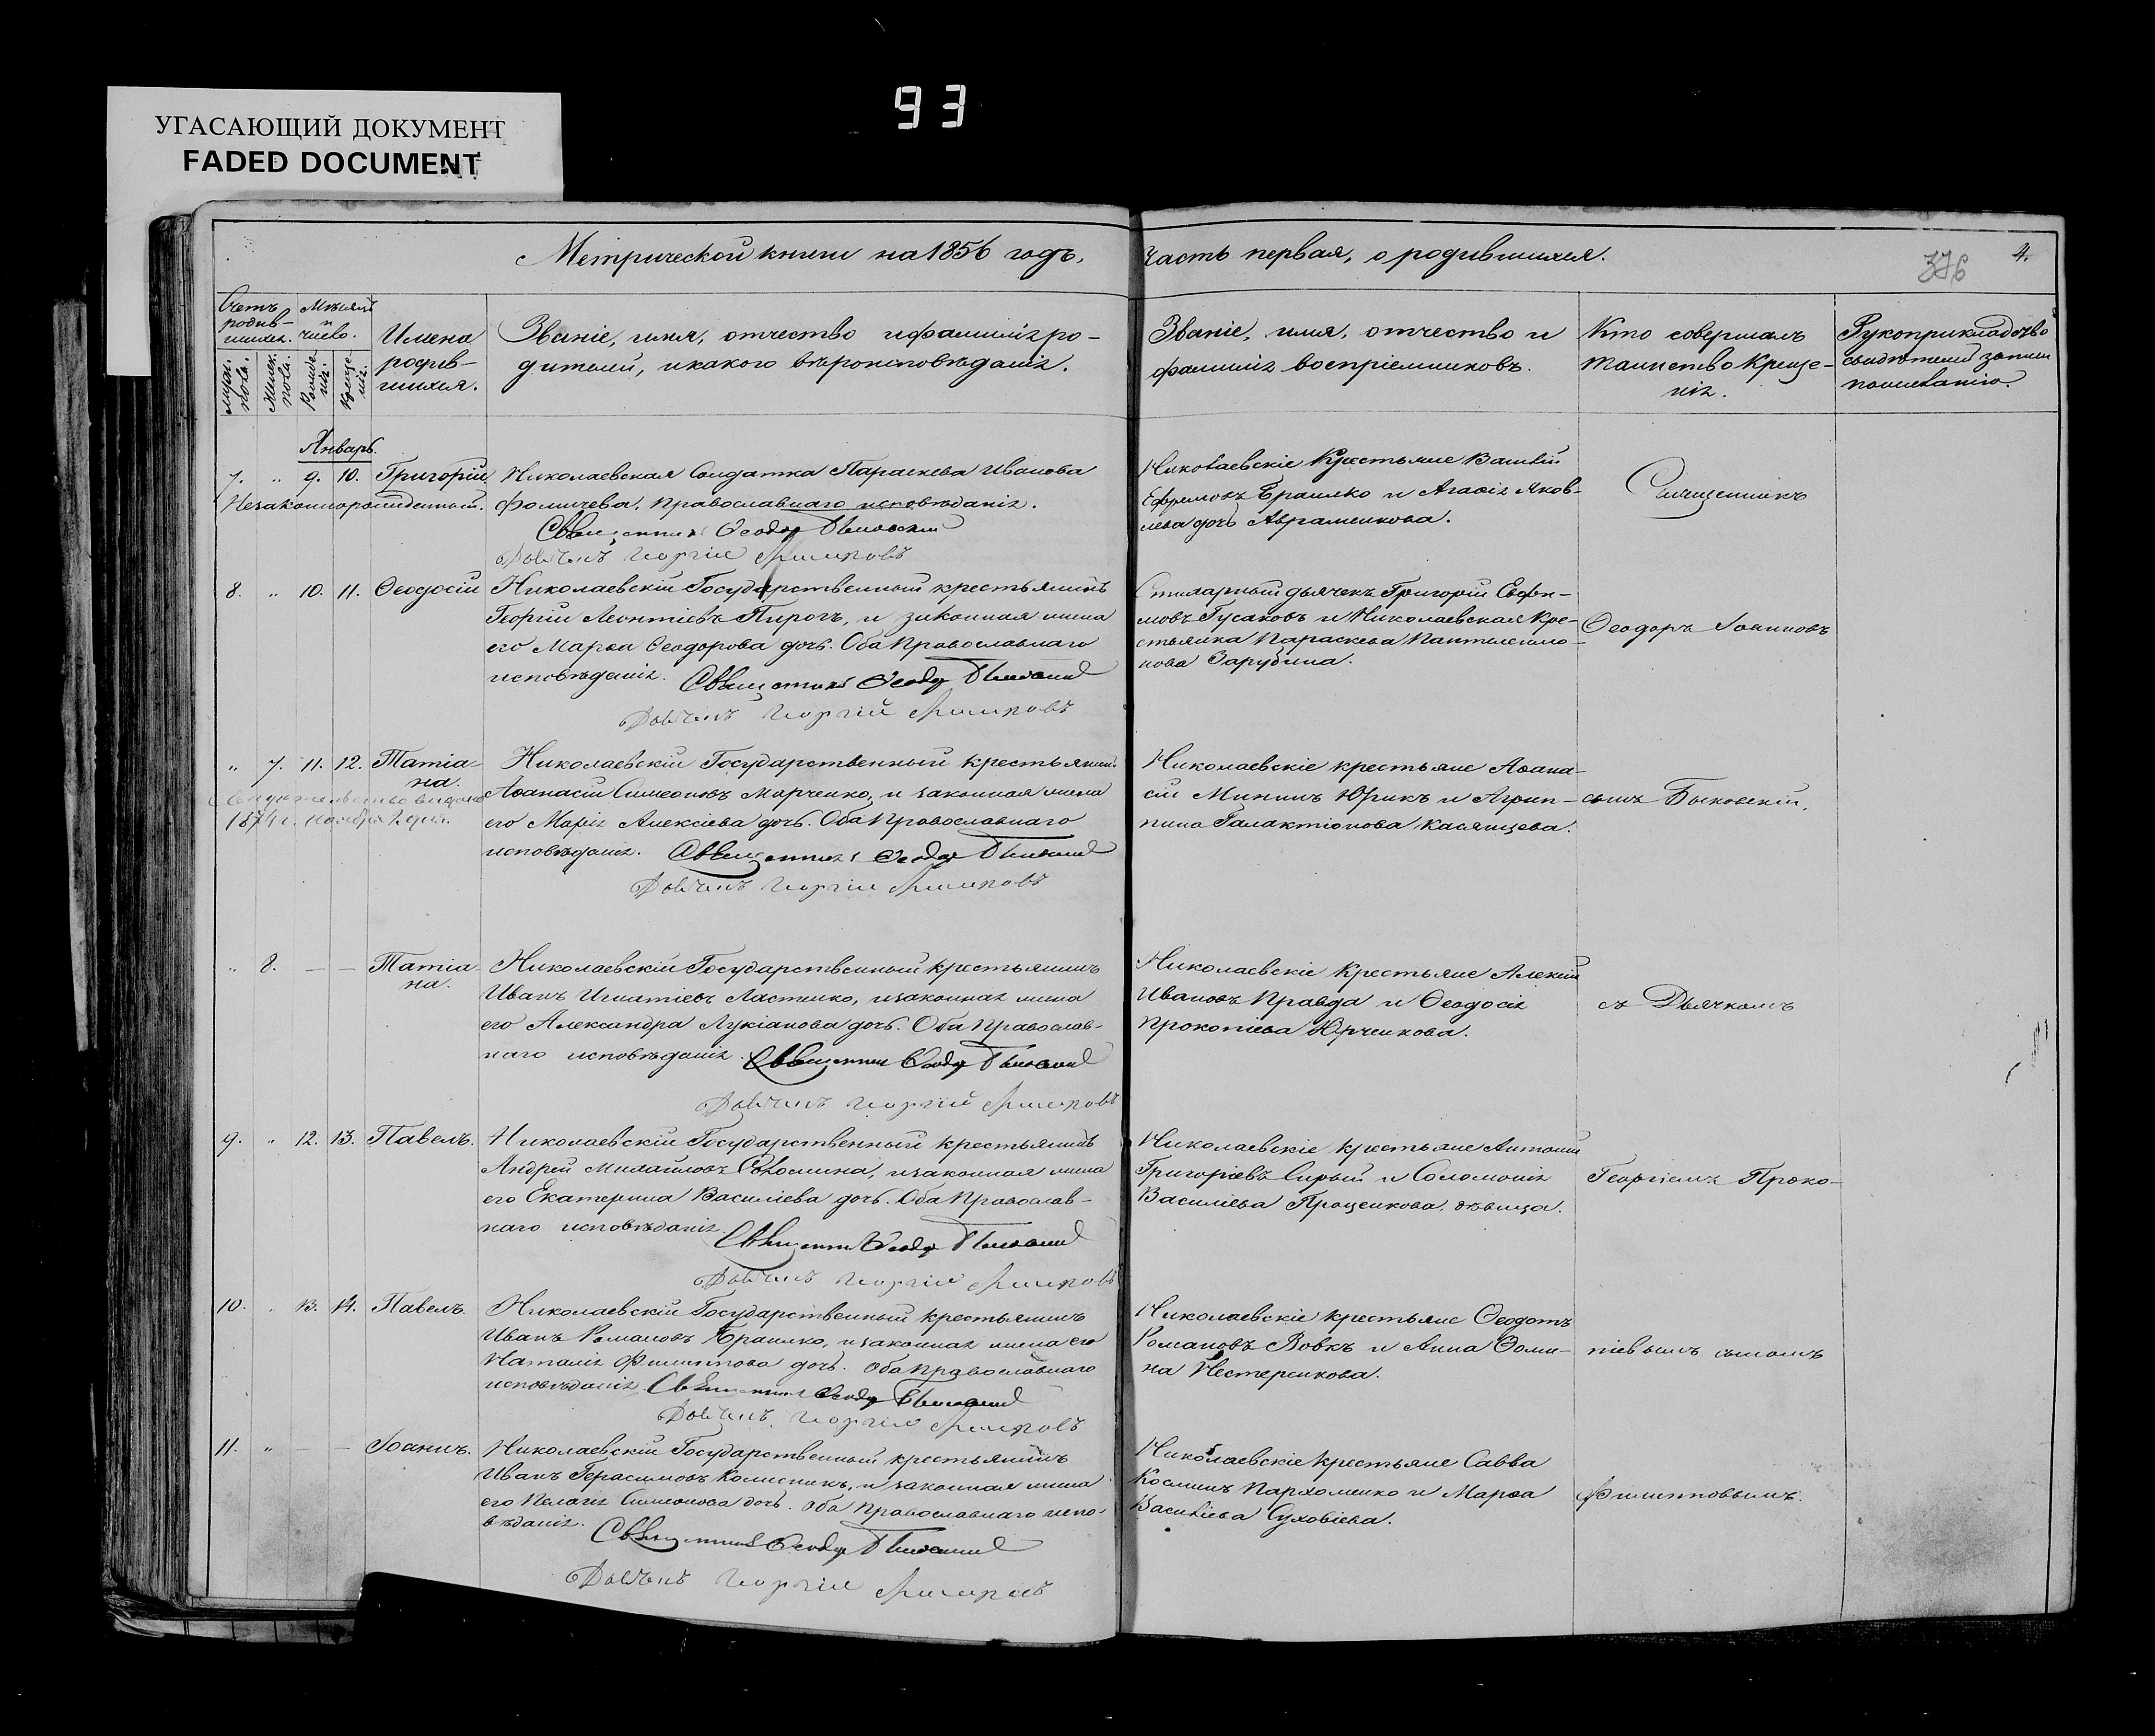 93
УГАСАЮЩИЙ ДОКУМЕНТ
FADED DOCUMENT
Метрической книги на 1856 годъ,
часть первая, о родившихся.
376
4.
Счетъ родив-шихся.
Мѣсяцъ и число.
муж. пола.
Женск. пола.
Рожде-нія.
Креще-нія.
Имена
родив-
шихся.
Званіе, имя, отчество и фамилія ро-
дителей, и какого вѣроисповѣданія.
Званіе, имя, отчество и
фамилія воспріемниковъ.
Кто совершалъ
таинство Креще-
нія.
Рукоприкладство
свидѣтелей записи
по желанію.
Январь.
7. „ 9. 10. Григорій
Незаконнорожденный.
Николаевская Солдатка Параскева Иванова
Фомичева, Православнаго исповѣданія.
Священникъ Ѳеодоръ
Дьячекъ Георгій
Николаевскіе Крестьяне Василій
Ефремовъ Брашко и Агаѳія Яков-
лева дочь Авраменкова.
Священникъ
8. „ 10. 11. Ѳеодосій
Николаевскій Государственный крестьянинъ
Георгій Леонтіевъ Пирогъ, и законная жена
его Марѳа Ѳеодорова дочь. Оба Православнаго
исповѣданія. Священникъ Ѳеодоръ
Дьячекъ Георгій
Стихарный дьячекъ Григорій Евфи-
мовъ Гусаковъ и Николаевская Кре-
стьянка Параскева Пантелеимо-
нова Зарубина.
Ѳеодоръ Іоанновъ
„ 7. 11. 12. Татіа-
на.
1874 г. Ноября 2 дня.
Николаевскій Государственный крестьянинъ
Аѳанасій Симеоновъ Марченко, и законная жена
его Марія Алексіева дочь. Оба Православнаго
исповѣданія. Священникъ Ѳеодоръ
Дьячекъ Георгій
Николаевскіе крестьяне Аѳана-
сій Мининъ Юрикъ и Агрип-
пина Галактіонова Касянцева.
сынъ Быковскій,
„ 8. — — Татіа-
на.
Николаевскій Государственный крестьянинъ
Иванъ Игнатіевъ Ластенко, и законная жена
его Александра Лукіанова дочь. Оба Православ-
наго исповѣданія. Священникъ Ѳеодоръ
Дьячекъ Георгій
Николаевскіе Крестьяне Алексій
Ивановъ Правда и Ѳеодосія
Прокопіева Юрченкова.
съ Дьячкомъ
9. „ 12. 13. Павелъ.
Николаевскій Государственный крестьянинъ
Андрей Михайловъ и законная жена
его Екатерина Василіева дочь. Оба Православ-
наго исповѣданія.
Священникъ Ѳеодоръ
Дьячекъ Георгій
Николаевскіе крестьяне Антоній
Григоріевъ Сирый и Соломонія
Василіева Проценкова, дѣвица.
Георгіемъ Проко-
10. „ 13. 14. Павелъ.
Николаевскій Государственный крестьянинъ
Иванъ Романовъ Брашко, и законная жена его
Наталія Филиппова дочь. Оба Православнаго
исповѣданія. Священникъ Ѳеодоръ
Дьячекъ Георгій
Николаевскіе крестьяне Ѳеодотъ
Романовъ Вовкъ и Анна Ѳоми-
на Нестеренкова.
піевымъ сыномъ
11. „ — — Іоаннъ.
Николаевскій Государственный крестьянинъ
Иванъ Герасимовъ Колисникъ, и законная жена
его Пелагія Симеонова дочь. Оба Православнаго испо-
вѣданія.
Священникъ Ѳеодоръ
Дьячекъ Георгій
Николаевскіе крестьяне Савва
Косминъ Пархоменко и Марѳа
Василіева Суховіева.
Филипповымъ.